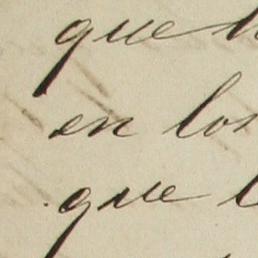 que
en los
que